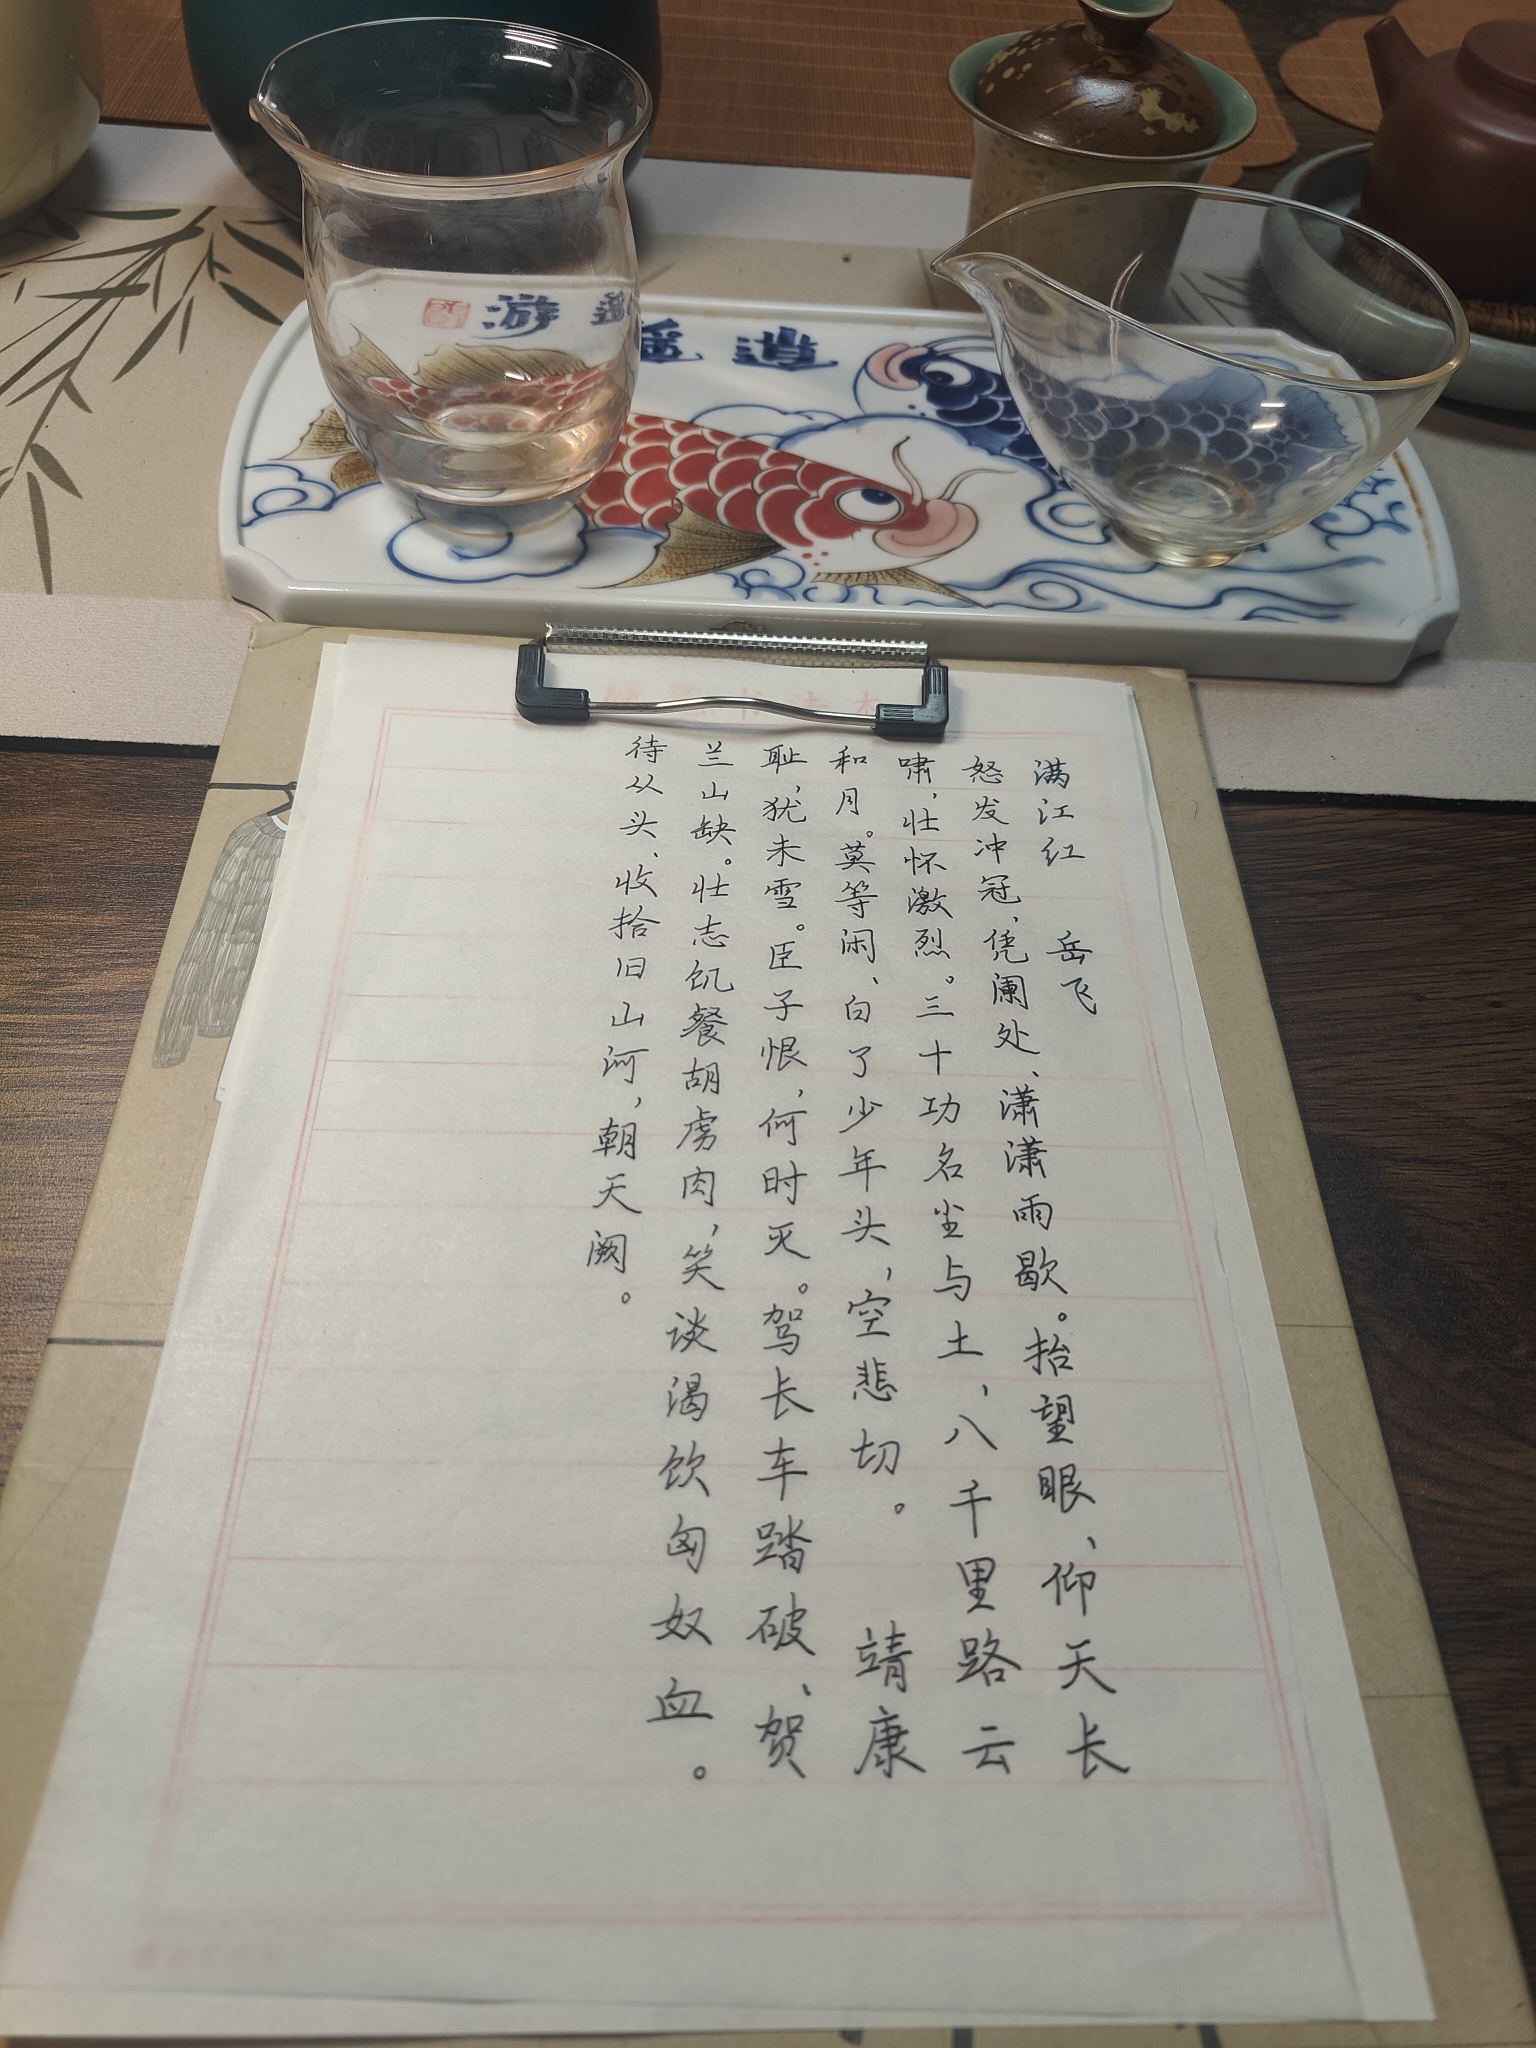 逍遥游
满江红 岳飞
怒发冲冠，凭阑处、潇潇雨歇。抬望眼、仰天长
啸，壮怀激烈。三十功名尘与土，八千里路云
和月。莫等闲、白了少年头，空悲切。 靖康
耻，犹未雪。臣子恨，何时灭。驾长车踏破、贺
兰山缺。壮志饥餐胡虏肉，笑谈渴饮匈奴血。
待从头、收拾旧山河，朝天阙。